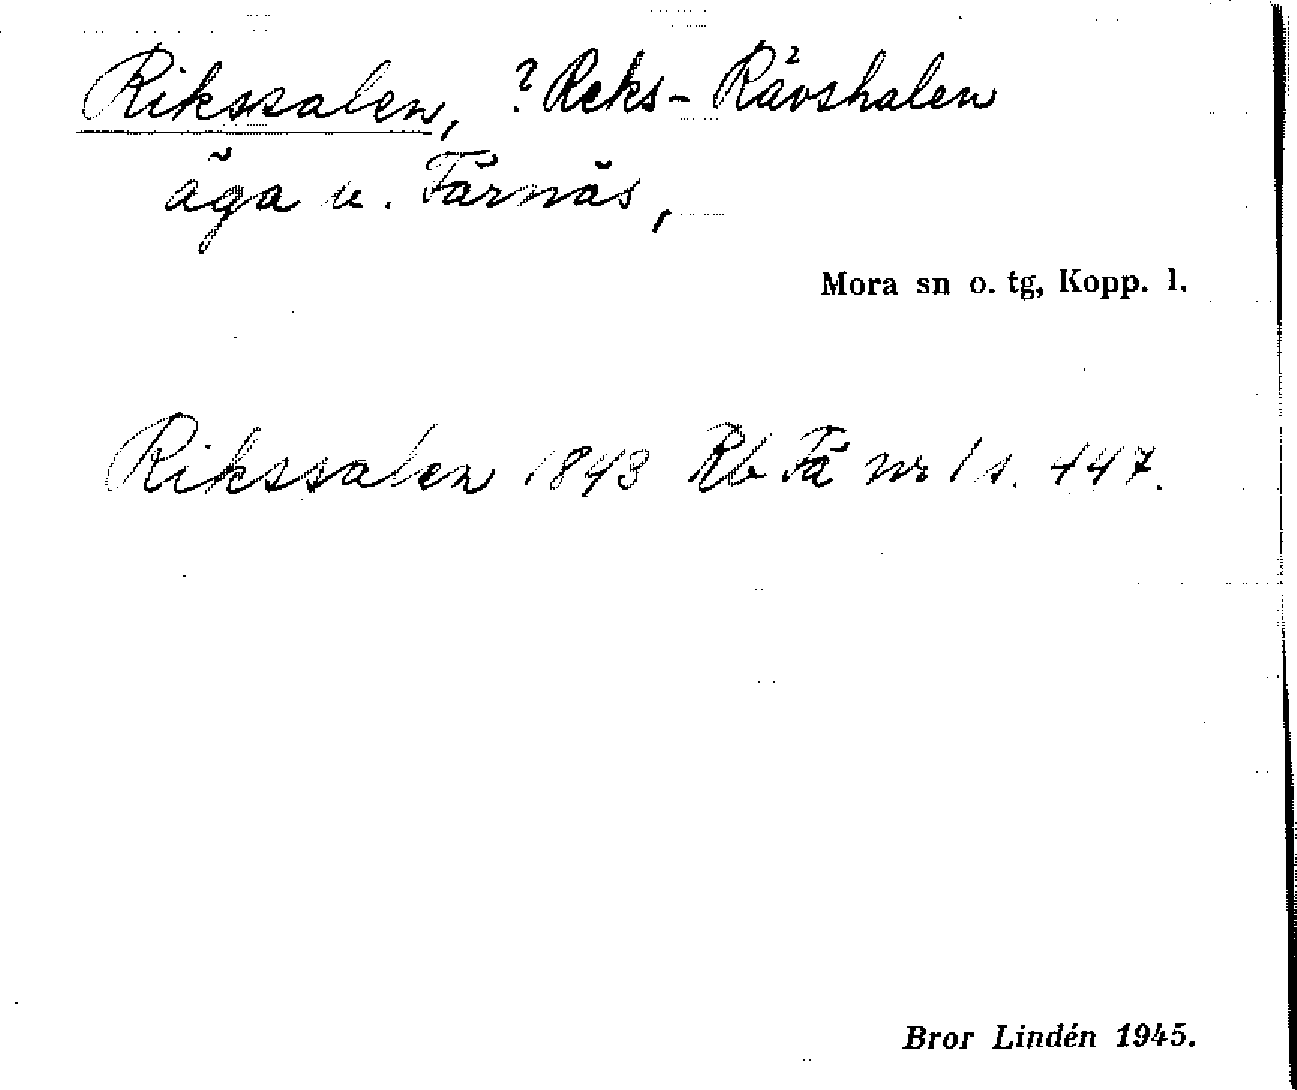 Rikssalen, ? Reks- Rävshalen
äga u. Färnäs,
Mora sn o. tg, Kopp. l.
Rikssalen 1843 Rb Fä nr 1 s. 447.
Bror Lindén 1945.